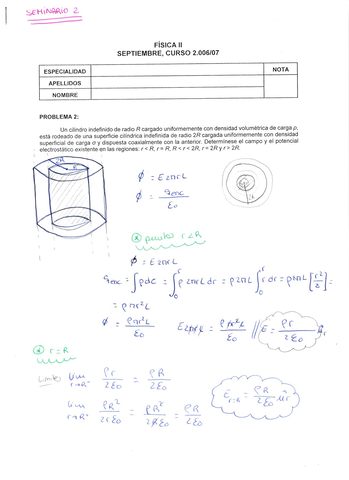 SEMINARIO 2
FÍSICA II
SEPTIEMBRE, CURSO 2.006/07
ESPECIALIDAD
NOTA
APELLIDOS
NOMBRE
PROBLEMA 2:
Un cilindro indefinido de radio R cargado uniformemente con densidad volumétrica de carga ρ,
está rodeado de una superficie cilíndrica indefinida de radio 2R cargada uniformemente con densidad
superficial de carga σ y dispuesta coaxialmente con la anterior. Determínese el campo y el potencial
electrostático existente en las regiones: r < R, r = R, R < r < 2R, r = 2R y r > 2R.
2R
R
ϕ = E2πrL
ϕ = qenc / ε0
puntos r<R
ϕ = E2πrL
qenc = ∫ρdC = ∫₀ʳ ρ2πrL dr = ρ2πL ∫₀ʳ r dr = ρ2πL [r²/2] =
= ρπr²L
ϕ = ρπr²L / ε0
E2πrL = ρπr²L / ε0 // E = ρr / 2ε0 ûr
r = R
Límites
lim r→R⁻ ρr / 2ε0 = ρR / 2ε0
lim r→R⁺ ρR² / 2rε0 = ρR² / 2Rε0 = ρR / 2ε0
E r=R = ρR / 2ε0 ûr